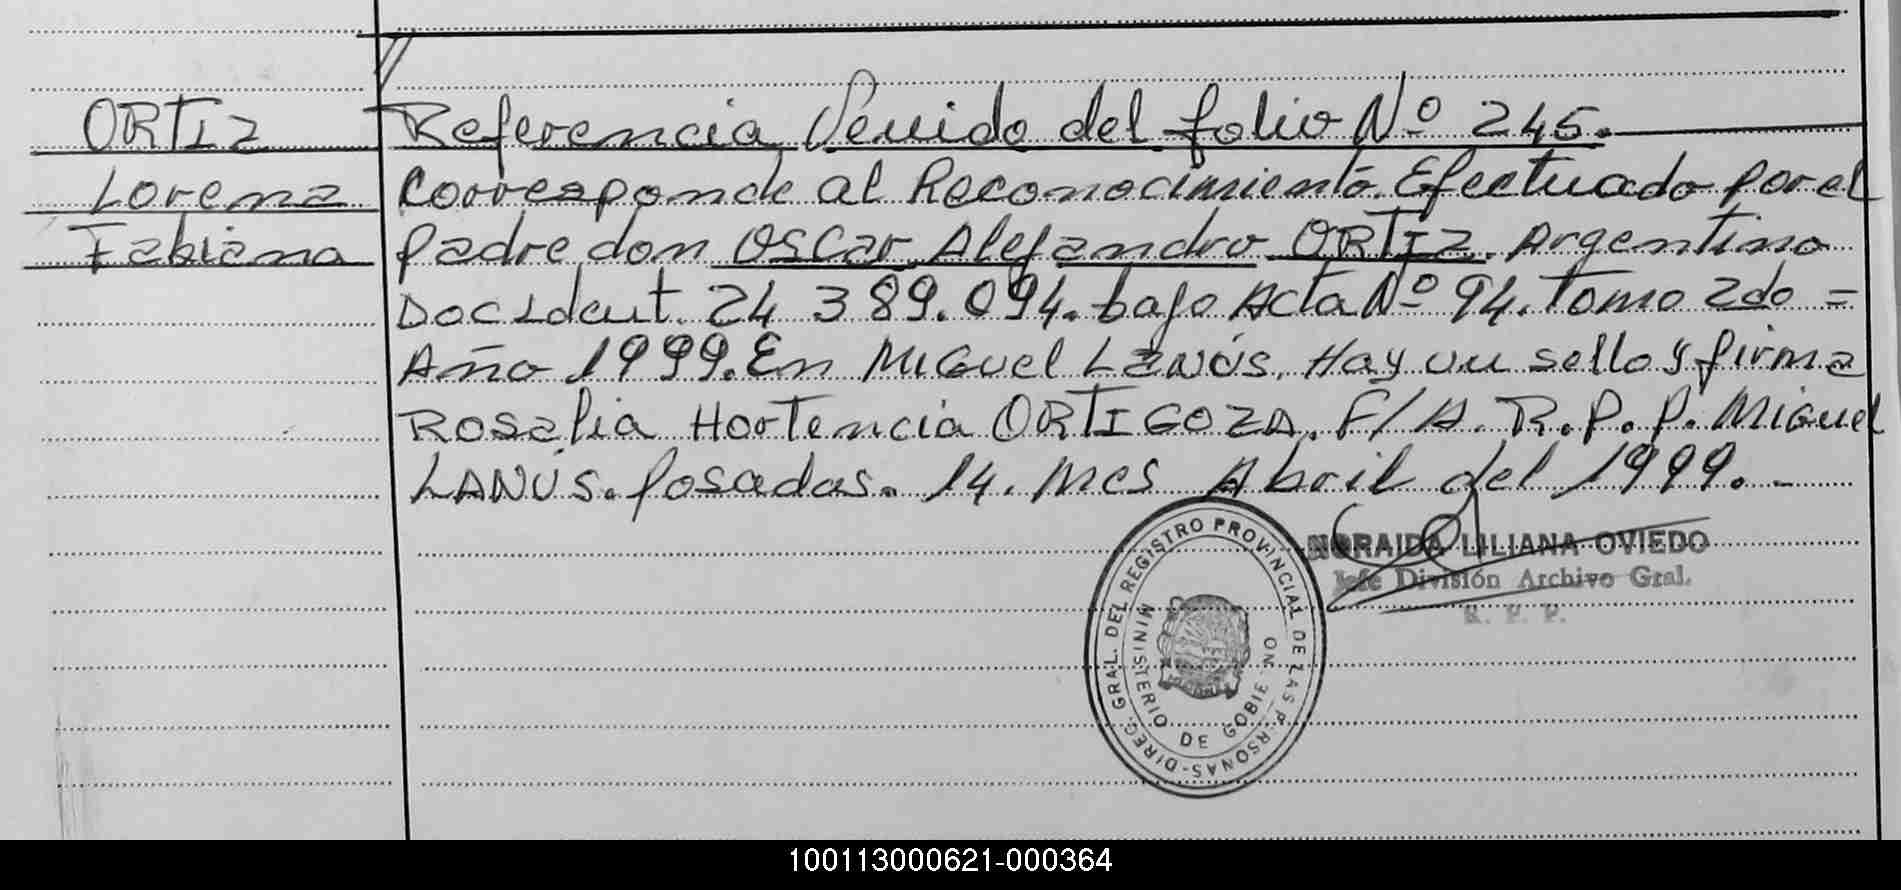 ORTIZ
Lorena
Fabiana
Referencia Venido del folio Nº 245.
Corresponde al Reconocimiento Efectuado por el
padre don Oscar Alejandro ORTIZ. Argentino
Doc Ident. 24 389.094. bajo Acta Nº 94. Tomo 2do =
Año 1999. En Miguel Lanús. Hay un sello y firma
Rosalia Hortencia ORTIGOZA. F/A. R.P.P. Miguel
LANÚS. Posadas. 14. Mes Abril del 1999.-
DIREC. GRAL. DEL REGISTRO PROVINCIAL DE LAS PERSONAS-
MINISTERIO DE GOBIE NO
NORAIDA LILIANA OVIEDO
Jefe División Archivo Gral.
R. P. P.
100113000621-000364